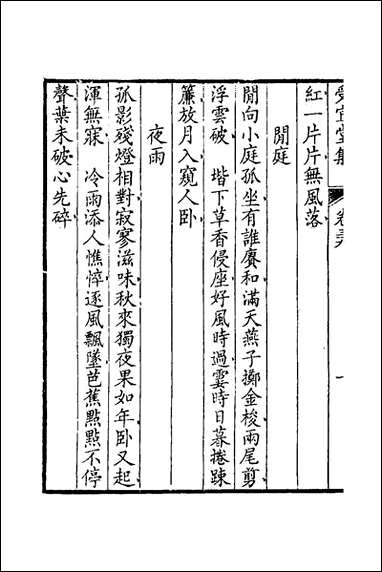 受宜堂集 卷三六 一
紅一片片無風落
閒庭
閒向小庭孤坐有誰賡和滿天燕子擲金梭兩尾剪
浮雲破 堦下草香侵座好風時過霎時日暮捲踈
簾放月入窺人卧
夜雨
孤影殘燈相對寂寥滋味秋來獨夜果如年卧又起
渾無寐 冷雨添人憔悴逐風飄墜芭蕉點點不停
聲葉未破心先碎